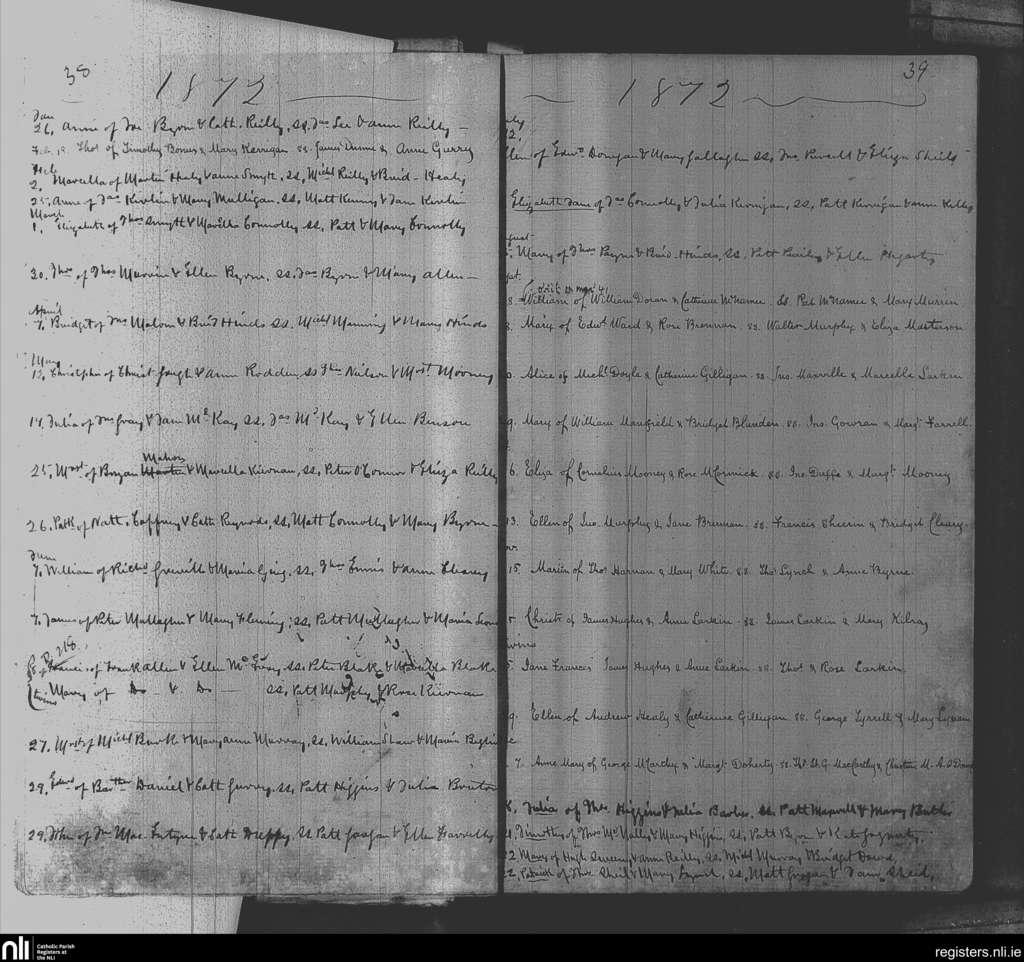 38
1872
Jan
26, Anne of Jno Byrne & Cath. Reilly, ss, Jas Lee & Anne Reilly
Feb. 18. Thos of Timothy Bones & Mary Kerrigan ss. James Dunne & Anne Guerry
Feb
2, Marcella of Martin Healy & Anne Smyth, ss, Michl Reilly & Brid Healy
25, Anne of Jas Kirwin & Mary Mulligan, ss, Matt Kenny & Jane Kirwin
March
1, Elizabeth of Thos Smyth & Marcella Connolly, ss, Patt & Mary Connolly
20, Thos of Thos Murrin & Ellen Byrne, ss, Jas Byrne & Mary Allen
April
7, Bridget of Jas Mahon & Brid Hinds ss. Michl Manning & Mary Hinds
May
12, Christopher of Christ Gough & Anne Rodden, ss Thos Neilson & Mart Mooney
14, Julia of Jas Gray & Jane McKay ss, Jas McKay & Ellen Benson
Mahon
25, Mart of Bryan & Marcella Kiernan, ss, Peter O'Connor & Eliza Reilly
26, Patk of Natt. Caffrey & Cath Reynolds, ss, Matt Connolly & Mary Byrne
June
7, William of Richd Grewill & Maria Greig, ss, Thos Ennis & Anne Cleary
7, James of Peter Mullagher & Mary Fleming, ss, Patt Mullagher & Maria
Francis of Frank Allen & Ellen ss, Peter Blake & Marcella Blake
twins Mary of Do & Do ss, Patt Murphy & Rose Kiernan
27, Mart of Michl Burke & Maryanne Murray, ss, William Shaw & Maria
29, Edwd of Barthw Daniel & Cath Gurry, ss, Patt Higgins & Julia Bruton
29, John of Jas Mac. Entyre & Cath Duffy, ss Patt Gaagan & Ellen Farrelly
39
1872
12,
Ellen of Edwd Donegan & Mary Gallagher ss, Jno Powell & Eliza Sheils
Elizabeth Jane of Jas Connolly & Julia Kernigan, ss, Patt Kernigan & Anne Kelly
Mary of Thos Payne & Brid. Hinds, ss, Patt Reilly & Ellen Hegarty
8. William of William Doran & Catherine McNamee. ss. Pat McNamee & Mary Murrin
Mary of Edwd Ward & Rose Brennan. ss. Walter Murphy & Eliza Masterson
Alice of Michl Doyle & Catherine Gilligan. ss. Jno. Maxwille & Marcella Larkin
9. Mary of William Mansfield & Bridget Blunden. ss. Jno. Gowran & Margt Farrell.
6. Eliza of Cornelius Mooney & Rose McCormick. ss. Jno Duffe & Margt Mooney
13. Ellen of Jno. Murphy & Jane Brennan. ss. Francis Sheerin & Bridget Cleary
15. Martin of Thos Harnan & Mary White. ss. Thos Lynch & Anne Byrne.
Christr of James Hughes & Anne Larkin. ss. James Larkin & Mary Kilray
twins
5. Jane Frances James Hughes & Anne Larkin. ss. Thos & Rose Larkin.
9. Ellen of Andrew Healy & Catherine Gilligan. ss. George Tyrrell & Mary Lynam
7. Anne Mary of George McCarthy & Margt Doherty. ss. St. G. MacCarthy & Christina M. A. O'Dowd
8, Julia of Thos Higgins & Julia Barlow. ss. Patt Maxwell & Mary Butler
Timothy of Thos McNally & Mary Higgins, ss, Patt Byrne & Kate Fogarty
22 Mary of Hugh Sweeny & Anne Reilly, ss, Michl Murray & Bridget Dowd,
22, Patrick of Thos Sheil & Mary Lynch, ss, Matt Grogan & Jane Sheid,
nli
Catholic Parish
Registers at
the NLI
registers.nli.ie